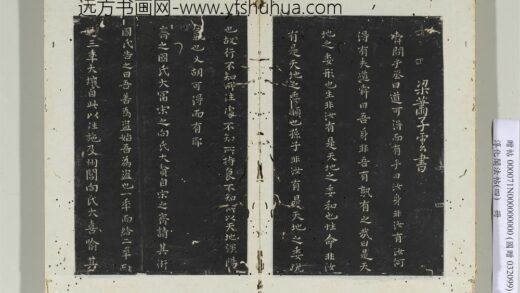 远方书画网-www.yfshuhua.com
梁蕭子雲書
舜問乎烝曰道可得而有乎曰汝身非汝有汝何
得有夫道舜曰吾身非吾有孰有之哉曰是天
地之委形也生非汝有是天地之委和也性命非汝
有是天地之委順也孫子非汝有是天地之委蛻
也故行不知所往處不知所持食不知所以天地强陽
氣也又胡可得而有耶
齊之國氏大富宋之向氏大貧自宋之齊請其術
國氏告之曰吾善為盜始吾為盜也一年而給二年而
足三年大穰自此以往施及州閭向氏大喜喻其
贈帖 000071N000000000 (國贈 032099)
淳化閣法帖(四) 冊